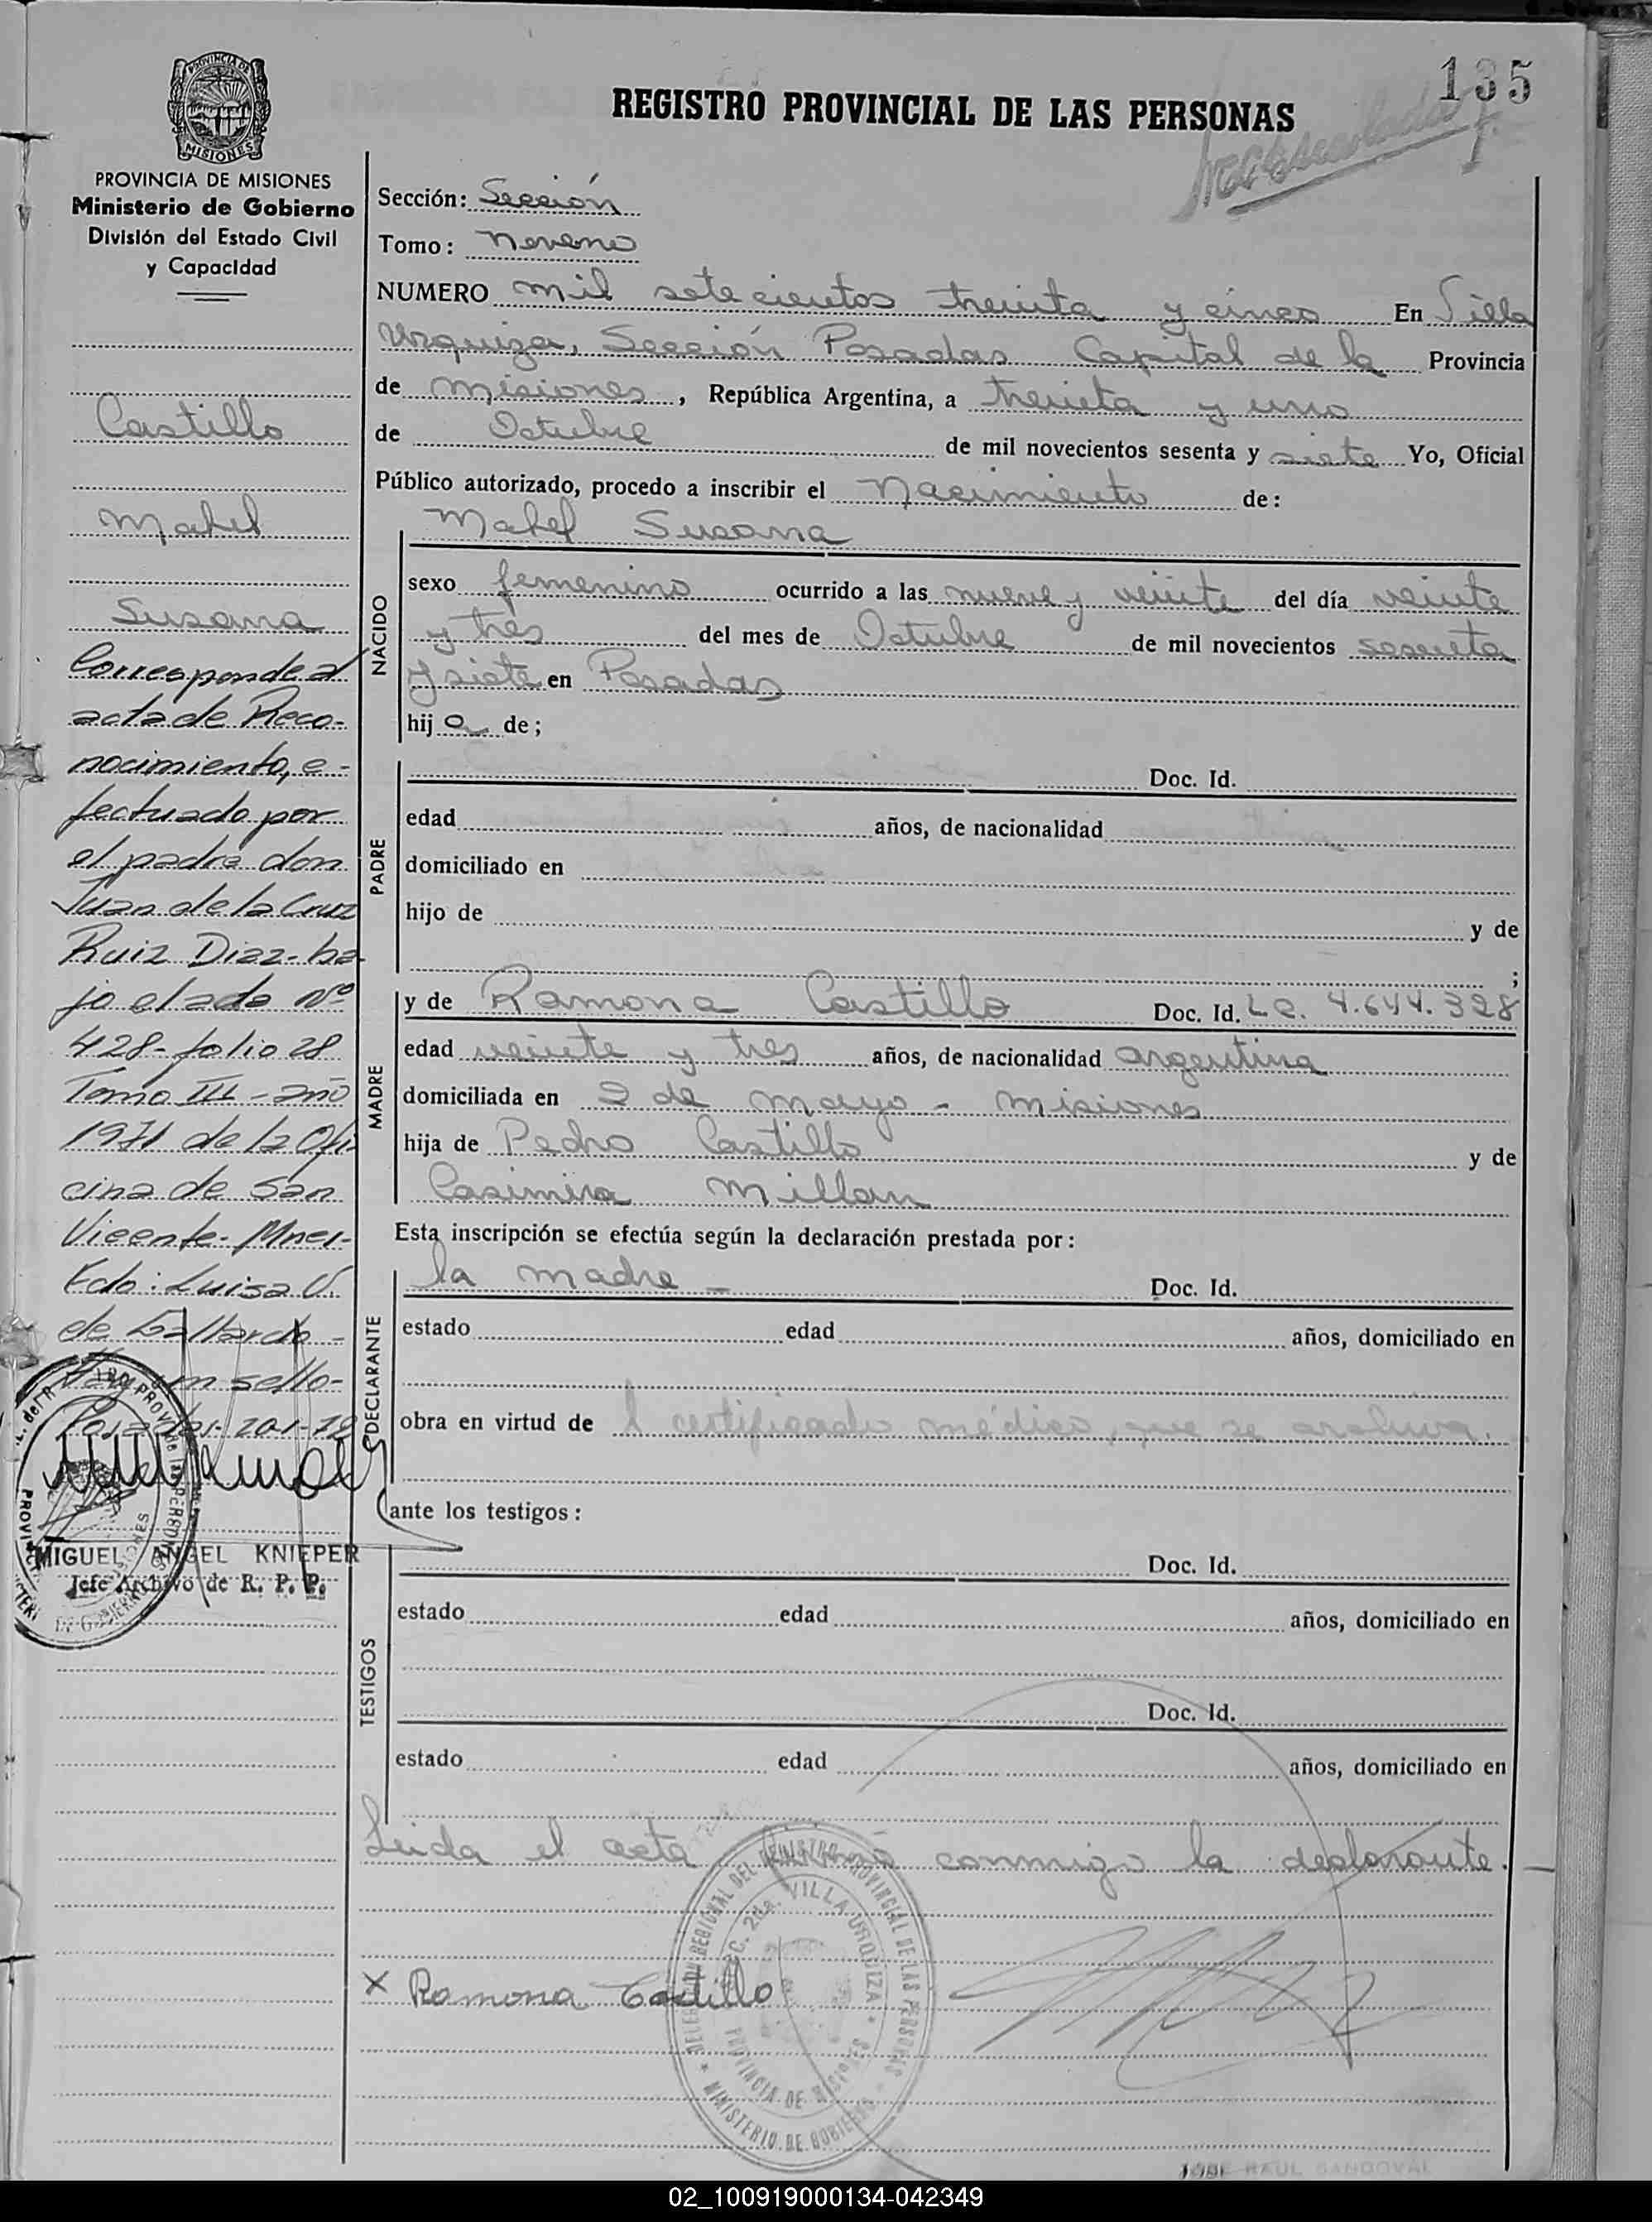 135
REGISTRO PROVINCIAL DE LAS PERSONAS
PROVINCIA DE
MISIONES
PROVINCIA DE MISIONES
Ministerio de Gobierno
División del Estado Civil
y Capacidad
Castillo
Mabel
Susana
Corresponde al
acta de Reco-
nocimiento, e-
fectuado por
el padre don
Juan de la Cruz
Ruiz Diaz- ba-
jo el acta Nº
428- folio 28
Tomo III - año
1971 de la Ofi-
cina de San
Vicente- Mnes-
Fdo: Luisa V.
de Gallardo -
Hay un sello-
MIGUEL ANGEL KNIEPER
Jefe Archivo de R. P. P.
Sección: Sección
Tomo: noveno
NUMERO mil setecientos treinta y cinco En Villa
Urquiza, Sección Posadas Capital de la Provincia
de Misiones, República Argentina, a treinta y uno
de Octubre de mil novecientos sesenta y siete Yo, Oficial
Público autorizado, procedo a inscribir el Nacimiento de:
NACIDO
Mabel Susana
sexo femenino ocurrido a las nueve y veinte del día veinte
y tres del mes de Octubre de mil novecientos sesenta
y siete en Posadas
hij a de;
PADRE
Doc. Id.
edad años, de nacionalidad
domiciliado en
hijo de y de
;
MADRE
y de Ramona Castillo Doc. Id. LC. 4.644.328
edad veinte y tres años, de nacionalidad argentina
domiciliada en 2 de mayo - Misiones
hija de Pedro Castillo y de
Casimira Millan
Esta inscripción se efectúa según la declaración prestada por:
DECLARANTE
la madre - Doc. Id.
estado edad años, domiciliado en
obra en virtud de l certificado médico, que se archiva.
ante los testigos:
TESTIGOS
Doc. Id.
estado edad años, domiciliado en
Doc. Id.
estado edad años, domiciliado en
Leida el acta firmó conmigo la declarante. -
DELEGACION REGIONAL DEL REGISTRO PROVINCIAL DE LAS PERSONAS
SEC. 2da. VILLA URQUIZA
PROVINCIA DE MISIONES
MINISTERIO DE GOBIERNO
X Ramona Castillo
JOSE RAUL SANDOVAL
02_100919000134-042349